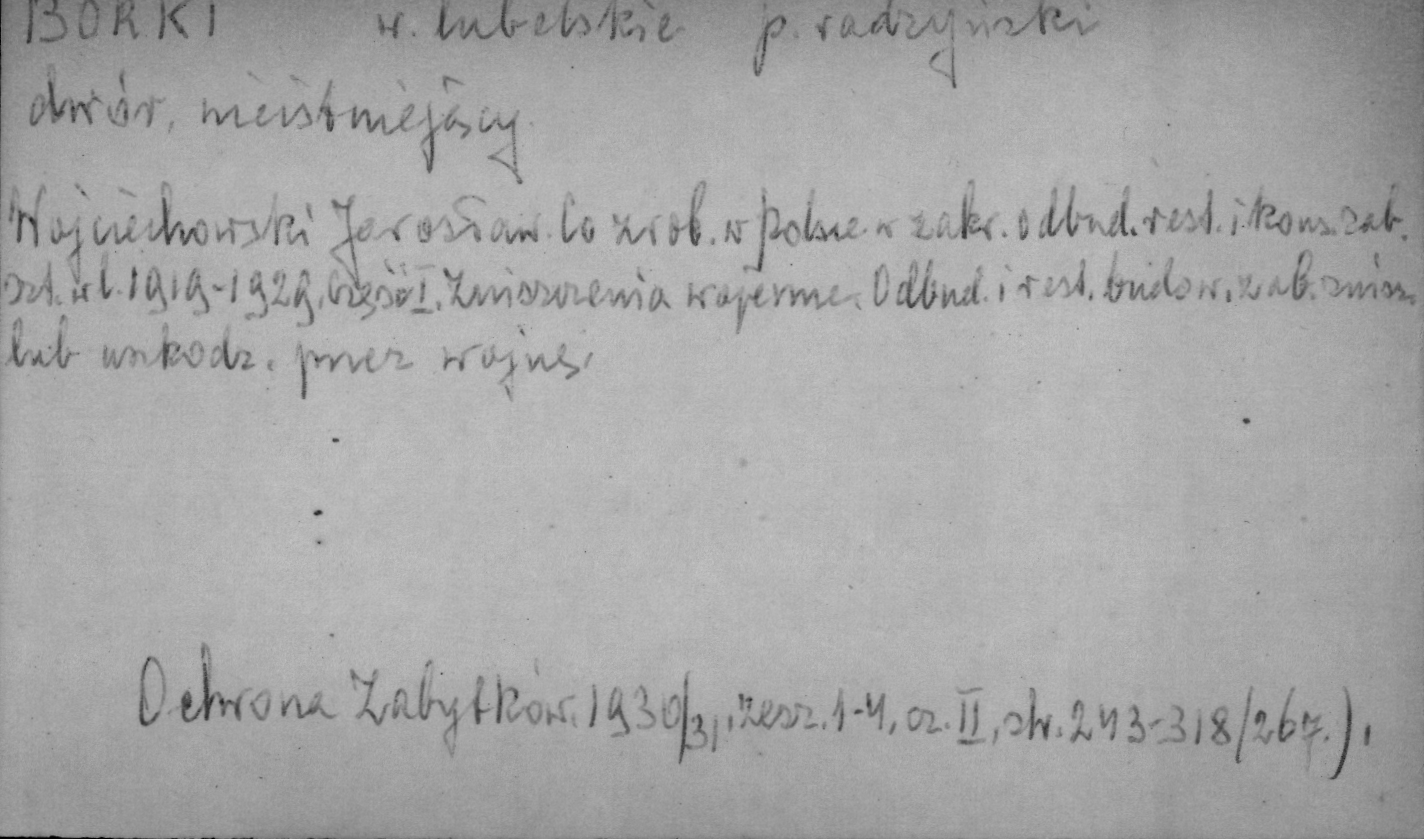 BORKI w. lubelskie p. radzyński
dwór, nieistniejący.
Wojciechowski Jarosław. Co zrob. w Polsce w zakr. odbud. rest. i kons. zab.
szt. w l. 1919-1929. Część I. Zniszczenia wojenne. Odbud. i rest. budow. zab. zniszcz.
lub uszkodz. przez wojnę.
Ochrona Zabytków. 1930/31, zesz. 1-4, cz. II, str. 243-318/267.).